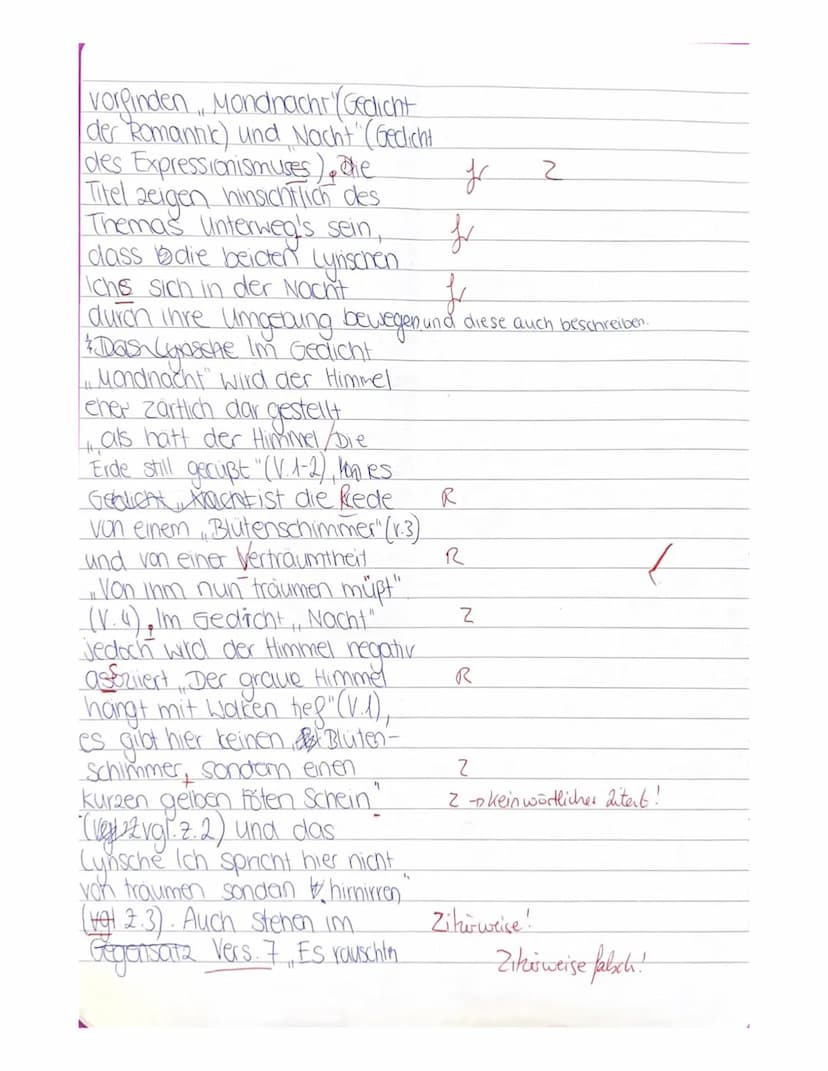 vorfinden „Mondnacht“(Gedicht
der Romantik) und „Nacht“(Gedicht
des Expressionismuses). Die fr Z
Titel zeigen hinsichtlich des
Themas Unterweg's sein, fr
dass die beiden Lyrischen
Ichs sich in der Nacht fr
durch ihre Umgebung bewegen und diese auch beschreiben.
Das Lyrische Im Gedicht
„Mondnacht“ wird der Himmel
eher zärtlich dar gestellt
„als hätt der Himmel/Die
Erde still geküßt“(V.1-2),
Gedicht „Nacht ist die Rede R
von einem „Blütenschimmer“(V.3)
und von einer Verträumtheit R
„Von ihm nun träumen müßt“
(V.4). Im Gedicht „Nacht“ Z
jedoch wird der Himmel negativ
assoziiert „Der graue Himmel R
hängt mit Wolken tief“(V.1),
es gibt hier keinen „Blüten-
schimmer, sondern einen Z
kurzen gelben röten Schein“ Z → kein wörtlicher Zitat!
(vgl. z.2) und das
Lyrische Ich spricht hier nicht
von träumen sondern „hinirren“
(vgl Z.3). Auch stehen im Zitierweise!
Gegensatz Vers. 7 „Es rauschtn Zitierweise falsch!